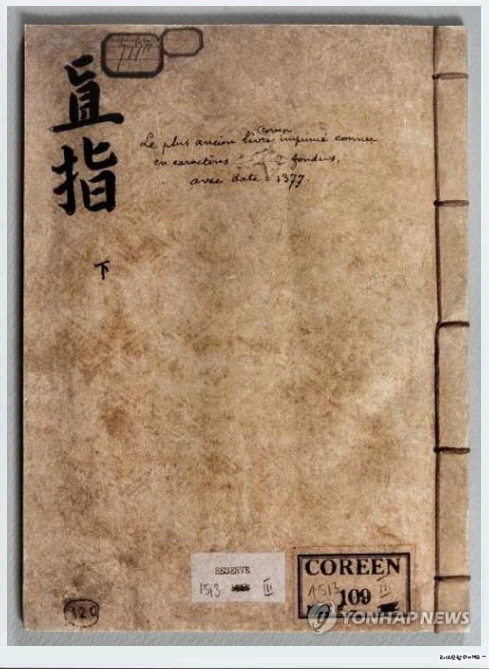 直指
下
coréen
Le plus ancien livre imprimé connu
en caractères fondus,
avec date = 1377.
RESERVE
1513 III
COREEN
1513 III
109
320
YONHAP NEWS